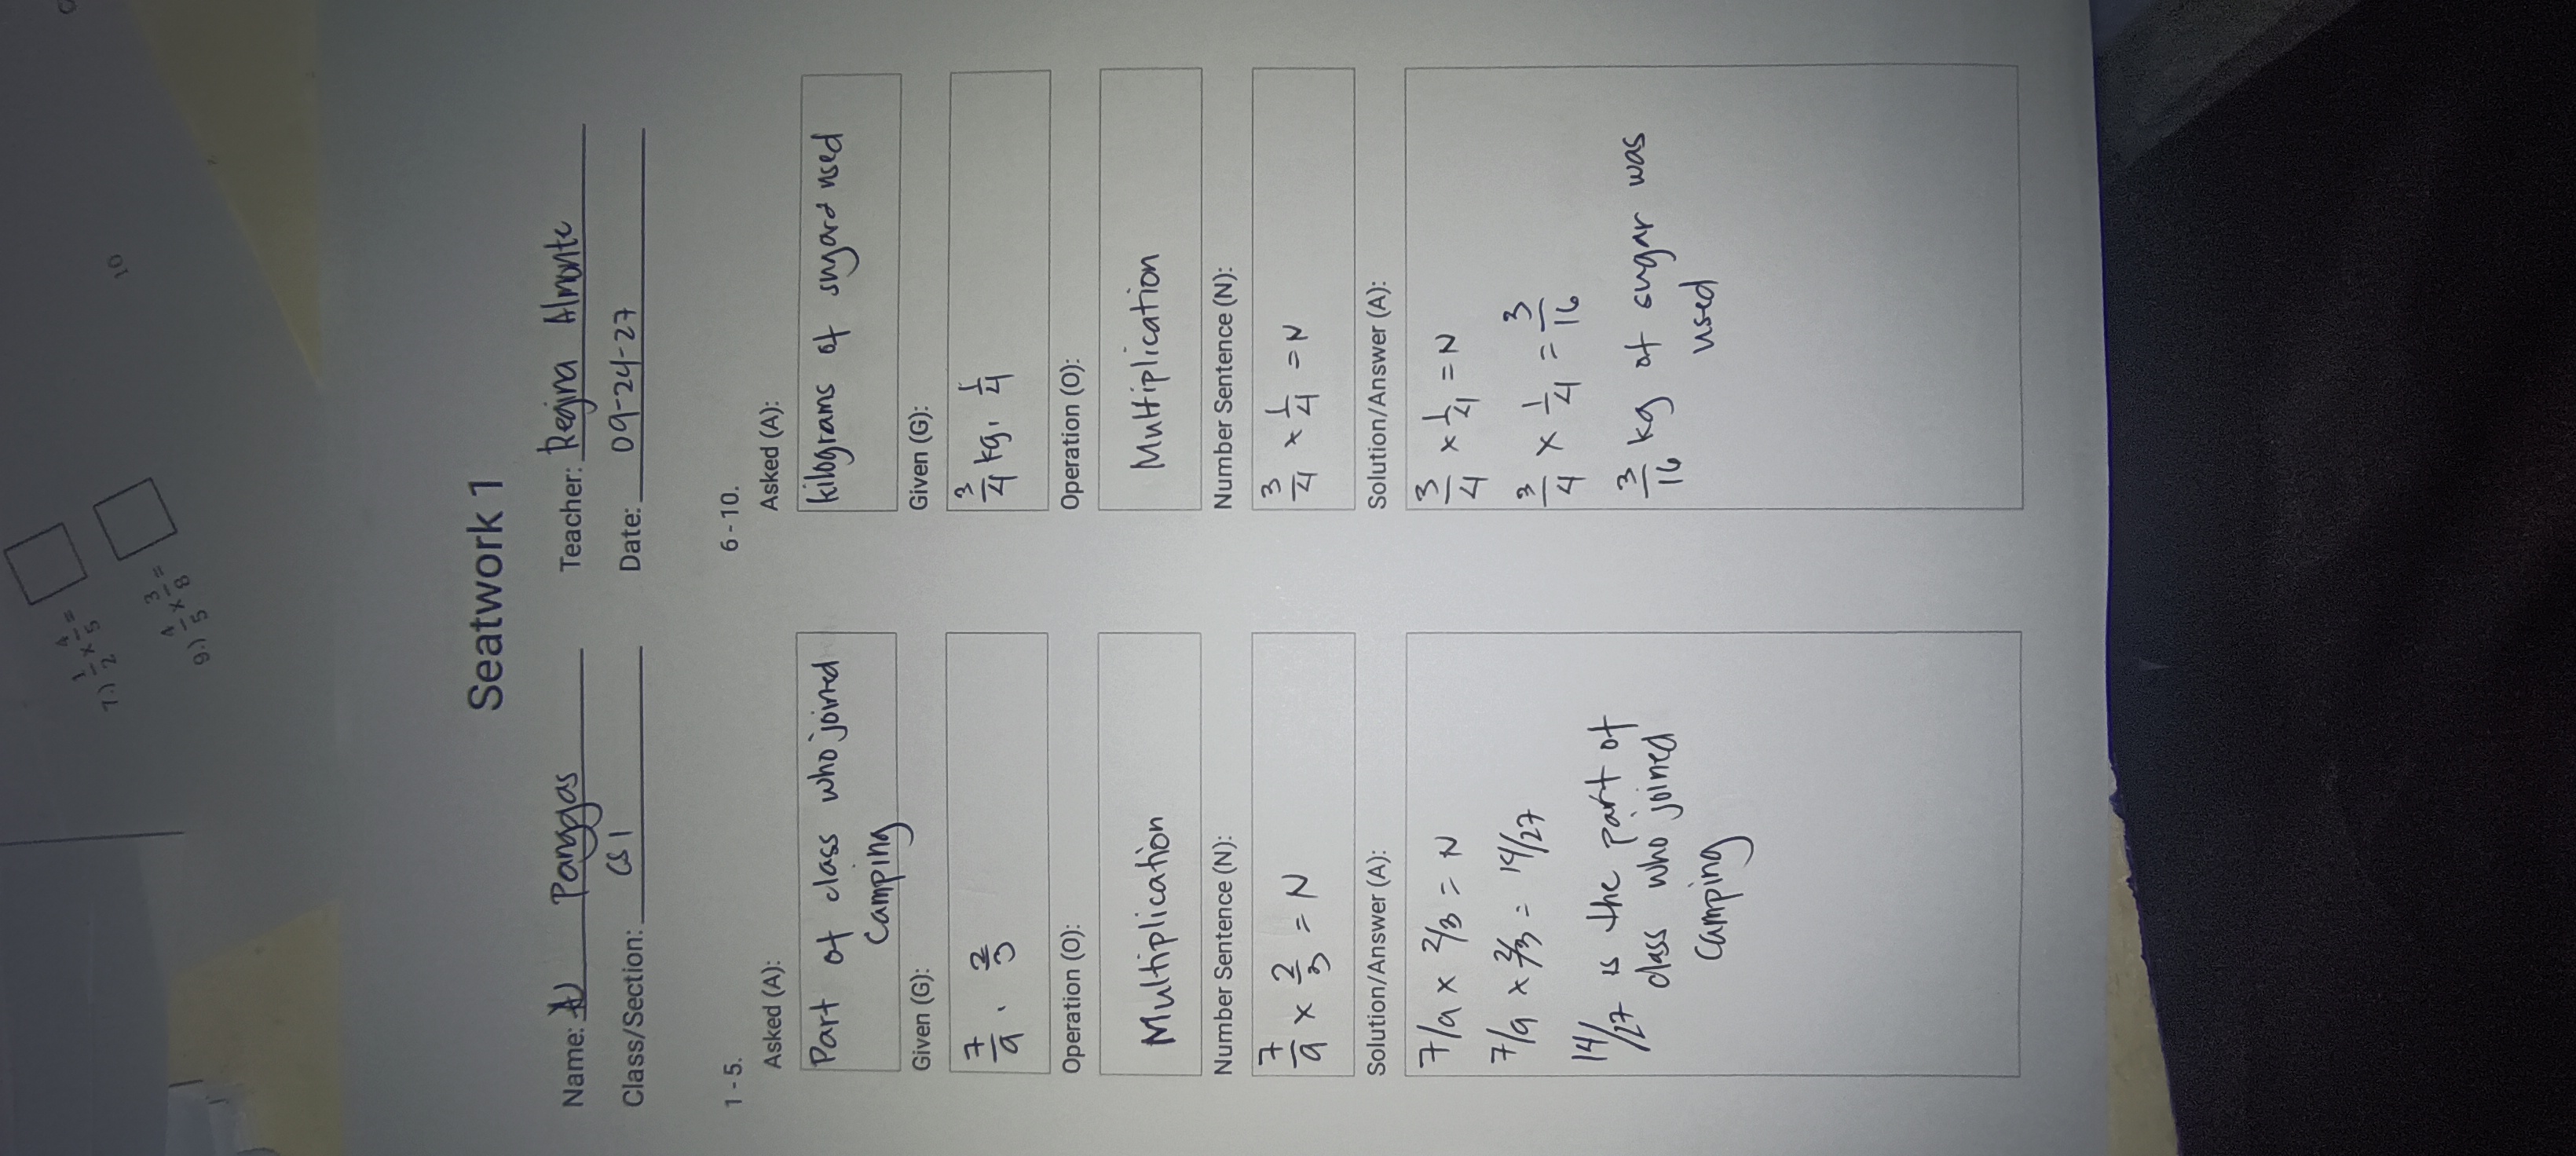 7.) 1/2 x 4/5 =
9.) 4/5 x 3/8 =
10
Seatwork 1
Name: AJ Panggas
Teacher: Regina Almonte
Class/Section: CS 1
Date: 09-24-27
1 - 5.
Asked (A):
Part of class who joined
camping
Given (G):
7/9 , 2/3
Operation (O):
Multiplication
Number Sentence (N):
7/9 x 2/3 = N
Solution/Answer (A):
7/9 x 2/3 = N
7/9 x 2/3 = 14/27
14/27 is the part of
class who joined
camping
6 - 10.
Asked (A):
kilograms of sugard used
Given (G):
3/4 kg, 1/4
Operation (O):
Multiplication
Number Sentence (N):
3/4 x 1/4 = N
Solution/Answer (A):
3/4 x 1/4 = N
3/4 x 1/4 = 3/16
3/16 kg of sugar was
used